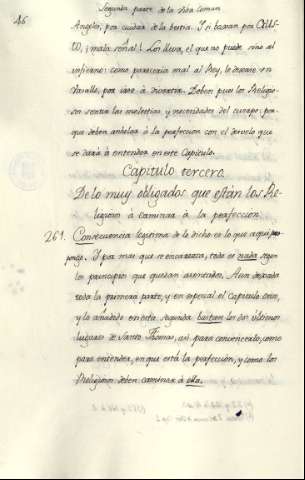 46
Segunda parte de la vida comun
Angeles, por cuidar de la bestia. I si baxaron por
¡mala señal! Los lleva, el que no puede sino al
infierno: como pareceria mal al Rey, le dexase un
Vasallo, por irse à divertir. Deben pues los Religio-
sos sentir las molestias y necesidades del cuerpo: por-
que deben anhelar à la perfeccion con el desvelo que
se dará à entender en este Capítulo.
Capítulo tercero
De lo muy obligados que están los Re-
ligiosos à caminar à la perfeccion
261. Consecuencia legitima de lo dicho es lo que aqui pro-
pongo. I por mas que se encarezca, todo es nada segun
los principios que quedan asentados. Aun dexando
toda la primera parte, y en especial el Capítulo
y lo añadido en esta segunda bastan los dos últimos
lugares de Santo Thomas, asi para convencerlo, como
para entender, en que está la perfección, y como los
Religiosos deben caminar à ella.